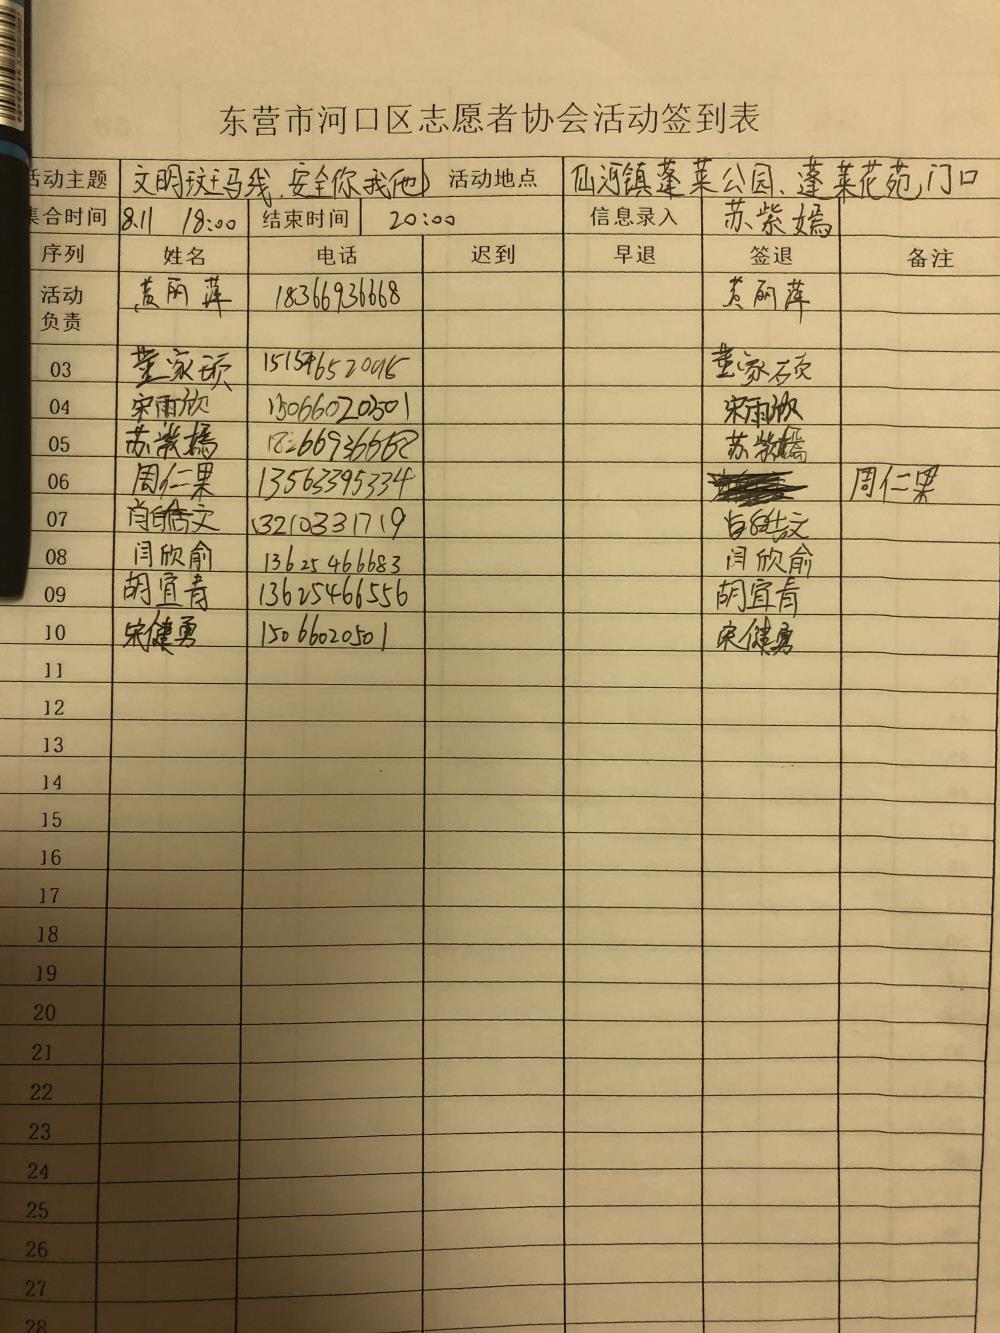 东营市河口区志愿者协会活动签到表
活动主题 文明斑马线、安全你我他 活动地点 仙河镇蓬莱公园、蓬莱花苑门口
集合时间 8.11 18:00 结束时间 20:00 信息录入 苏紫嫣
序列 姓名 电话 迟到 早退 签退 备注
活动负责 黄丽萍 18366936668 黄丽萍
03 董家硕 董家硕
04 宋雨欣 宋雨欣
05 苏紫嫣 18266936668 苏紫嫣
06 周仁果 13563395334 周仁果
07 13210331719
08 闫欣俞 13625466683 闫欣俞
09 胡宜青 13625466556 胡宜青
10 宋健勇 15066020501 宋健勇
11
12
13
14
15
16
17
18
19
20
21
22
23
24
25
26
27
28